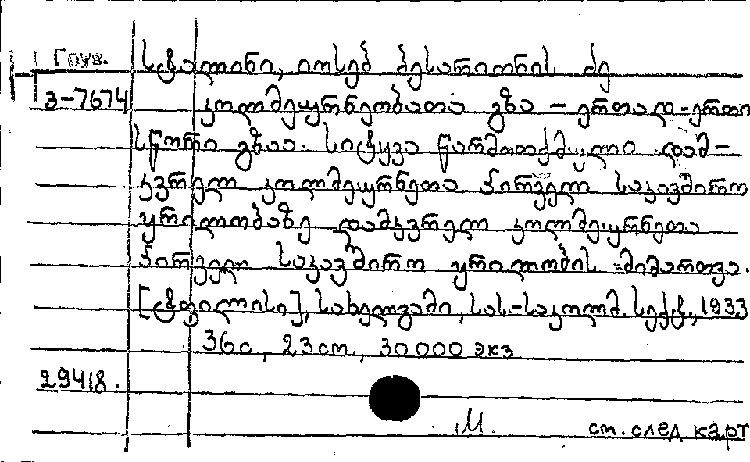 Груз. სტალინი, იოსებ ბესარიონის ძე
3-7674 კოლმეურნეობათა გზა – ერთად-ერთი
სწორი გზაა. სიტყვა წარმოთქმული დამ-
კვრელ კოლმეურნეთა პირველ საკავშირო
ყრილობაზე დამკვრელ კოლმეურნეთა
პირველ საკავშირო ყრილობის მიმართვა.
[ტფილისი], სახელგამი, სას-საკოლმ. სექტ., 1933
36с., 23см., 30000 экз
29418.
М. см. след карт